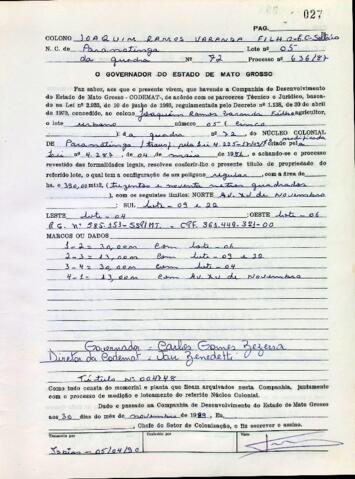 PAG.
027
COLONO JOAQUIM RAMOS VARANDA FILHO
N. C. de Paranatinga Lote nº 05
da quadra Nº 72 Processo nº 636/87
O GOVERNADOR DO ESTADO DE MATO GROSSO
Faz saber, aos que o presente virem, que havendo a Companhia de Desenvolvimento
do Estado de Mato Grosso - CODEMAT-, de acordo com os pareceres Técnico e Jurídico, basea-
dos na Lei nº 2.035, de 10 de julho de 1963, regulamentada pelo Decreto nº 1.138, de 30 de abril
de 1970, concedido, ao colono Joaquim Ramos Varanda Filho agricultor,
o lote urbano número 05 (cinco
) da quadra nº 72 do NÚCLEO COLONIAL
de Paranatinga
Lei nº 4.287, de 04 de maio de 1981, e achando-se o processo
revestido das formalidades legais, resolveu conferir-lhe o presente título de propriedade do
referido lote, o qual tem a configuração de um polígono regular, com a área de
390,00 mts2 (trezentos e noventa metros quadrados
), com os seguintes limites: NORTE Av. XV de Novembro
SUL lote - 09 e 22
LESTE lote - 04 OESTE lote - 06
R.G. nº 585.151-SSP/MT. - CPF. 361.449.321-00
MARCOS OU DADOS
1 - 2 = 30,00m com lote - 06
2 - 3 = 13,00m com lote - 09 e 22
3 - 4 = 30,00m com lote - 04
4 - 1 = 13,00m com Av. XV de Novembro
Governador - Carlos Gomes Bezerra
Diretor da Codemat - Jair Benedetti
Título Nº 004748
Como tudo consta do memorial e planta que ficam arquivados nesta Companhia, juntamente
com o processo de medição e loteamento do referido Núcleo Colonial.
Dado e passado na Companhia de Desenvolvimento do Estado de Mato Grosso
aos 30 dias do mês de novembro de 1989. Eu,
, Chefe do Setor de Colonização, o fiz escrever e assino.
Transcrito por
Conferido por
Visto
05/04/90